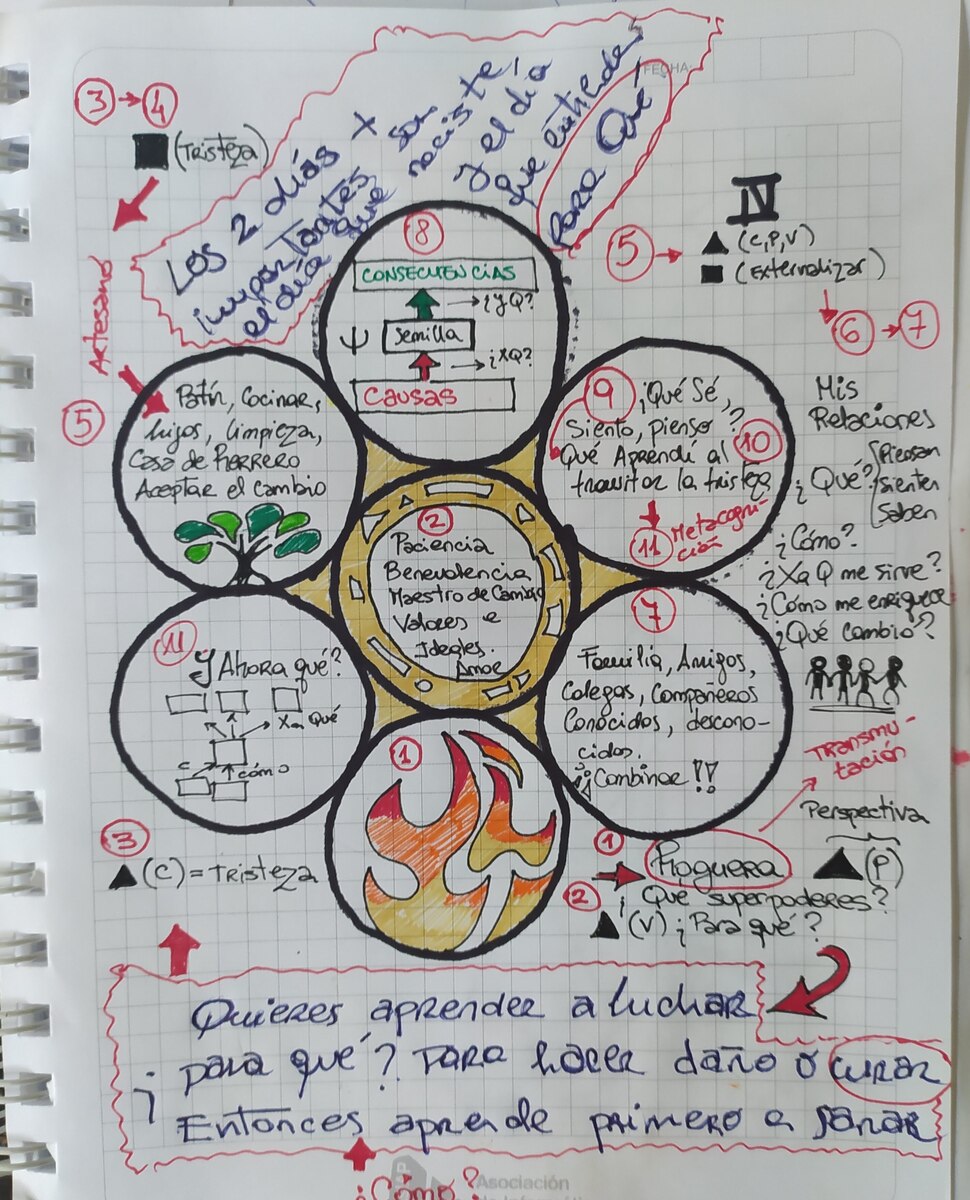 FECHA:
3 → 4
(Tristeza)
Artesano
Los 2 días +
importantes son
el día que naciste,
y el día
que entiende
para Qué!
IV
5 → ▲ (C,P,V)
■ (Externalizar)
6 → 7
8
CONSECUENCIAS
→ ¿YQ?
Ψ Semilla
→ ¿XQ?
CAUSAS
5
Patín, Cocinar,
hijos, limpieza,
Casa de herrero
Aceptar el cambio
9 ¿Qué Sé,
Siento, pienso? 10
Qué Aprendí al
transitar la tristeza
11 Metacogni-
ción
Mis
Relaciones
¿Qué? Piensan
sienten
Saben
¿Cómo?
¿Xa Q me sirve?
¿Cómo me enriquece
¿Qué cambio?
2
Paciencia
Benevolencia
Maestro de Cambio
Valores e
Ideales.
Amor
11
Y Ahora qué?
Xa Qué
c
cómo
7
Familia, Amigos,
Colegas, Compañeros
Conocidos, descono-
cidos.
¡¡Combinar!!
1
Transmu-
tación
Perspectiva
▲ (P)
3
▲ (C) = Tristeza
1 → Hoguera
2 ¿Qué superpoderes?
▲ (V) ¿Para qué?
Quieres aprender a luchar
¿para qué? Para hacer daño o curar
Entonces aprende primero a sanar
¿Cómo?
Asociación